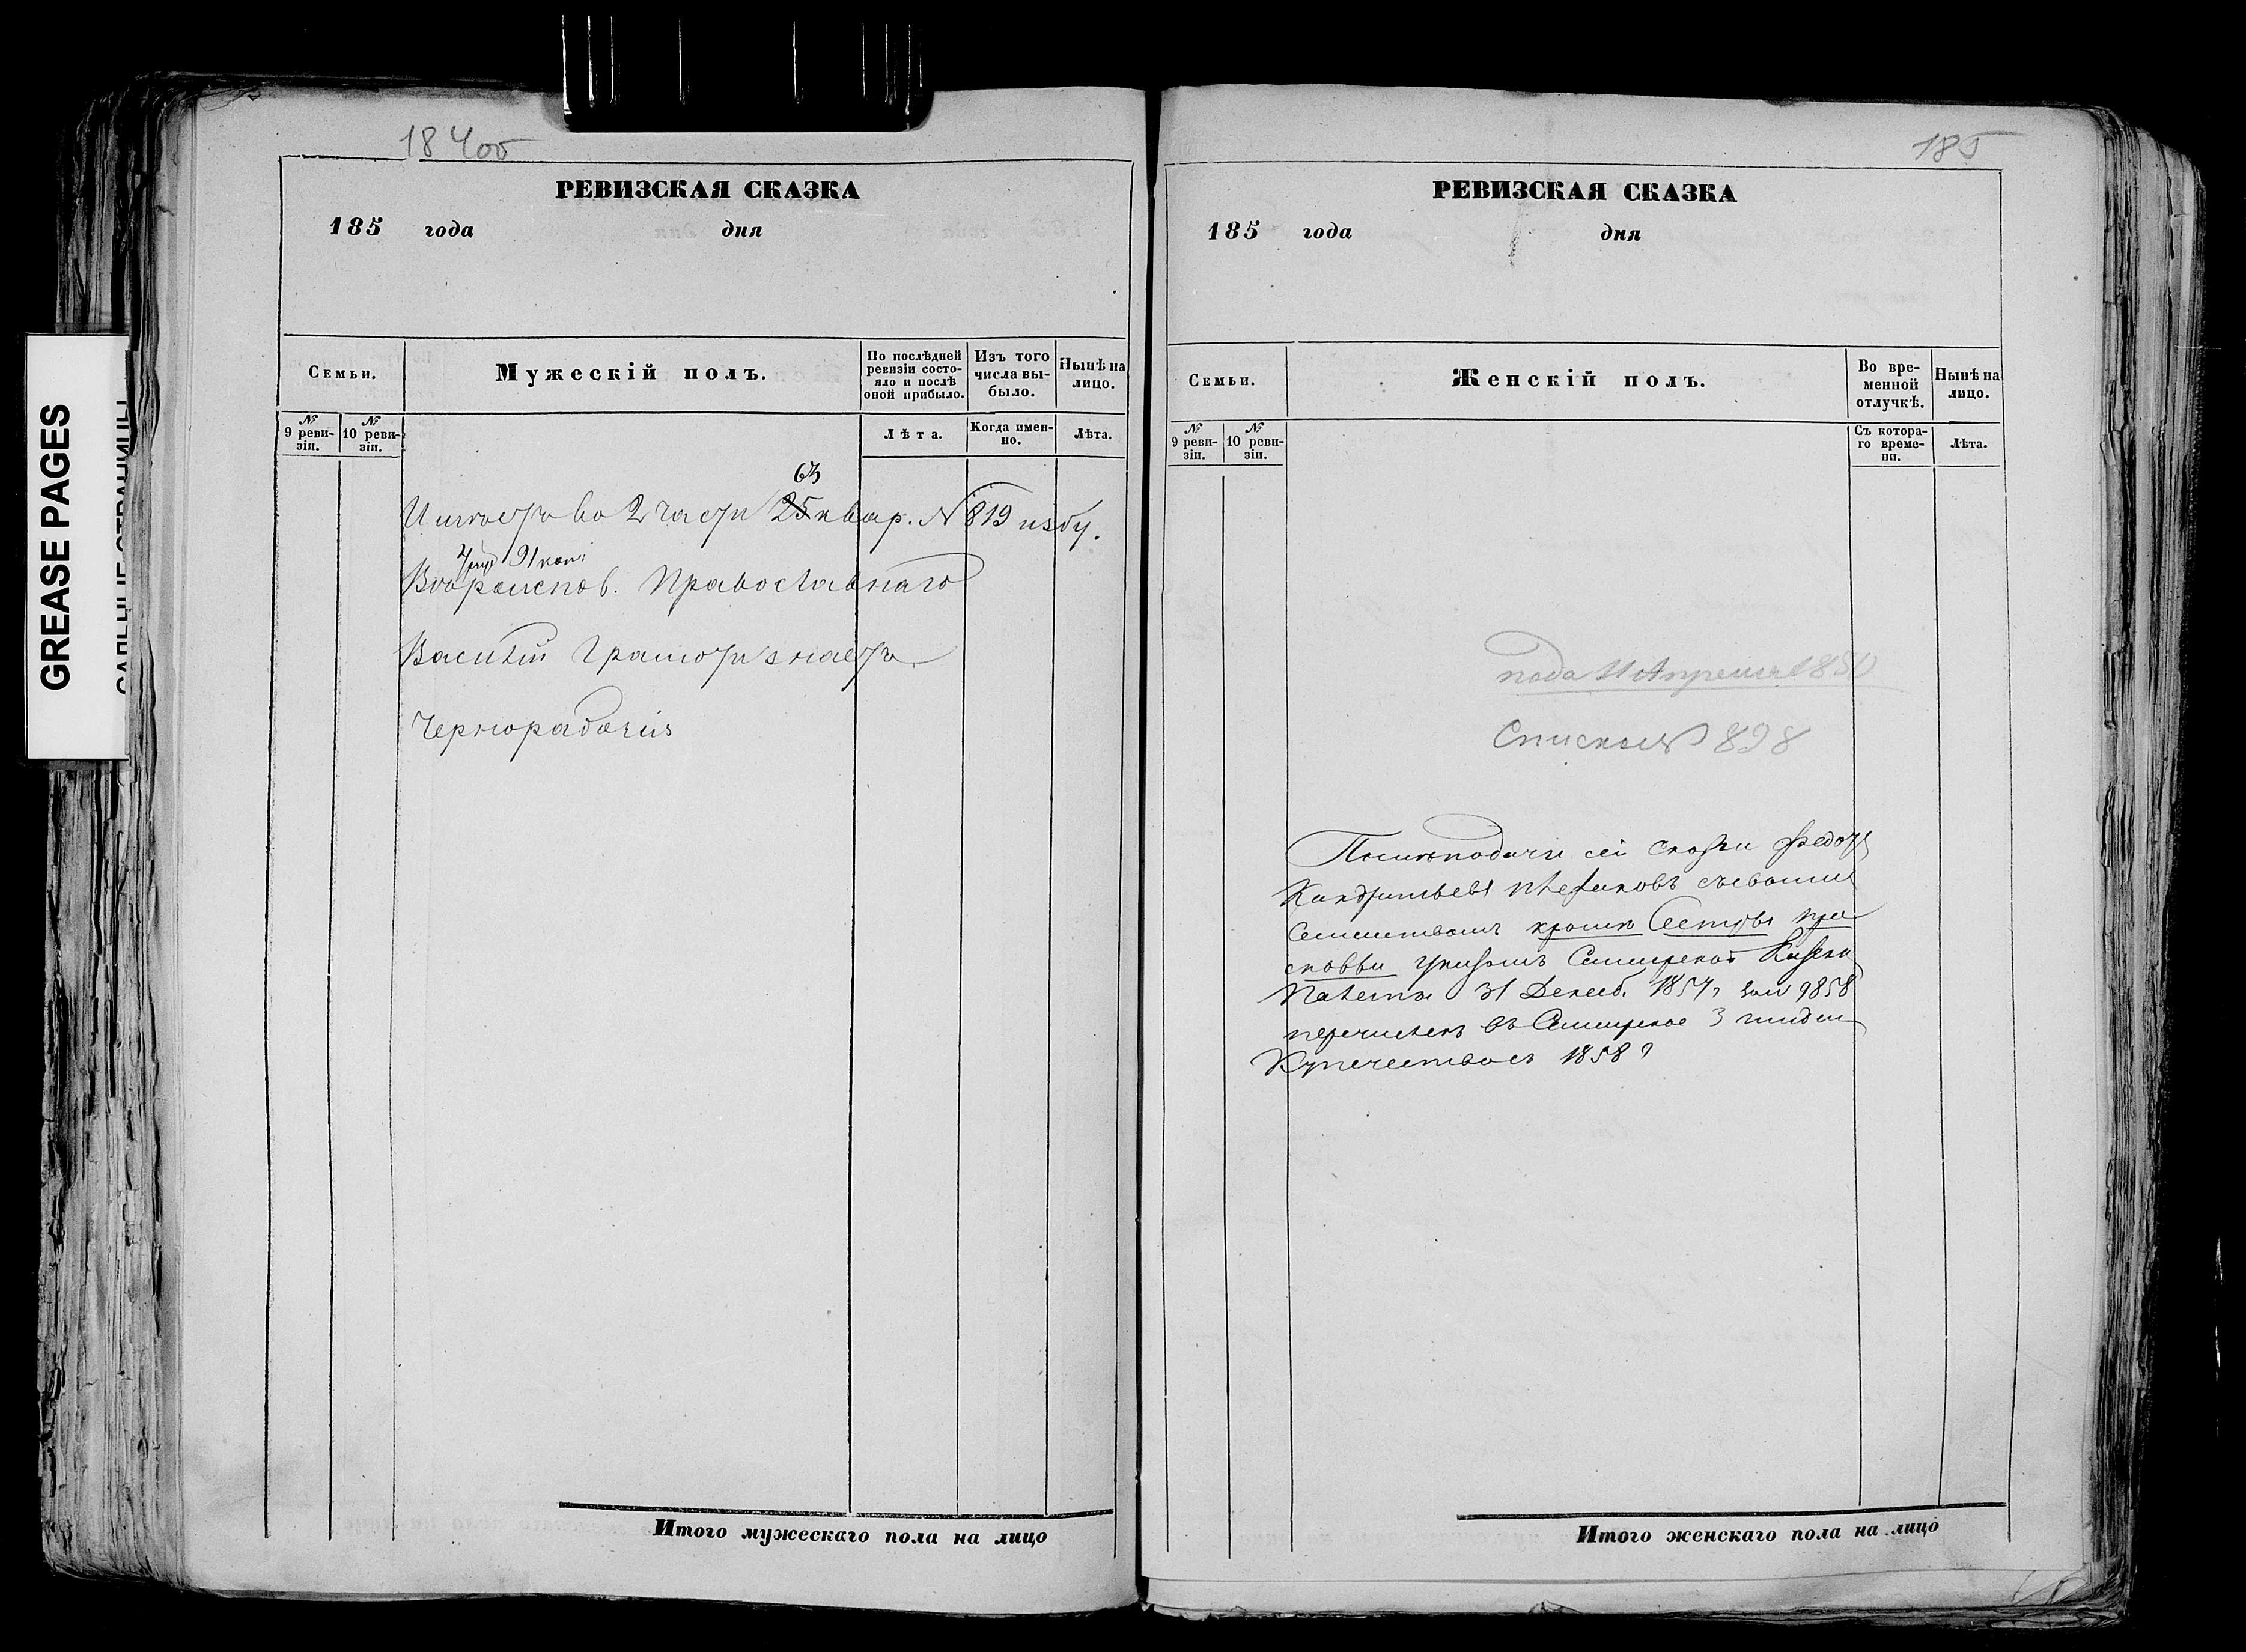 GREASE PAGES
САЛЬНЫЕ СТРАНИЦЫ
184об
РЕВИЗСКАЯ СКАЗКА
185 года дня
Семьи.
Мужескій полъ.
По послѣдней ревизіи состояло и послѣ оной прибыло.
Изъ того числа выбыло.
Нынѣ на лицо.
№ 9 ревизіи.
№ 10 ревизіи.
Лѣта.
Когда именно.
Лѣта.
63
Имѣетъ во 2 части 25 квар. N 819 избу.
4 91 коп:
Вѣроиспов. Православнаго
Василій Грамотѣ знаетъ
Чернорабочій
Итого мужескаго пола на лицо
185
РЕВИЗСКАЯ СКАЗКА
185 года дня
Семьи.
Женскій полъ.
Во временной отлучкѣ.
Нынѣ на лицо.
№ 9 ревизіи.
№ 10 ревизіи.
Съ котораго времени.
Лѣта.
пода 11 Апреля 185
Списокъ 898
После подачи сей сказки Федотъ
Кандратьевъ съ своимъ
Семействомъ кромѣ Сестры Пра
сковьи указомъ Симирской Казен
Палаты 31 Декаб. 1857 г за № 9858
перечисленъ въ Симирское 3 гильдіи
Купечество съ 1858 г
Итого женскаго пола на лицо